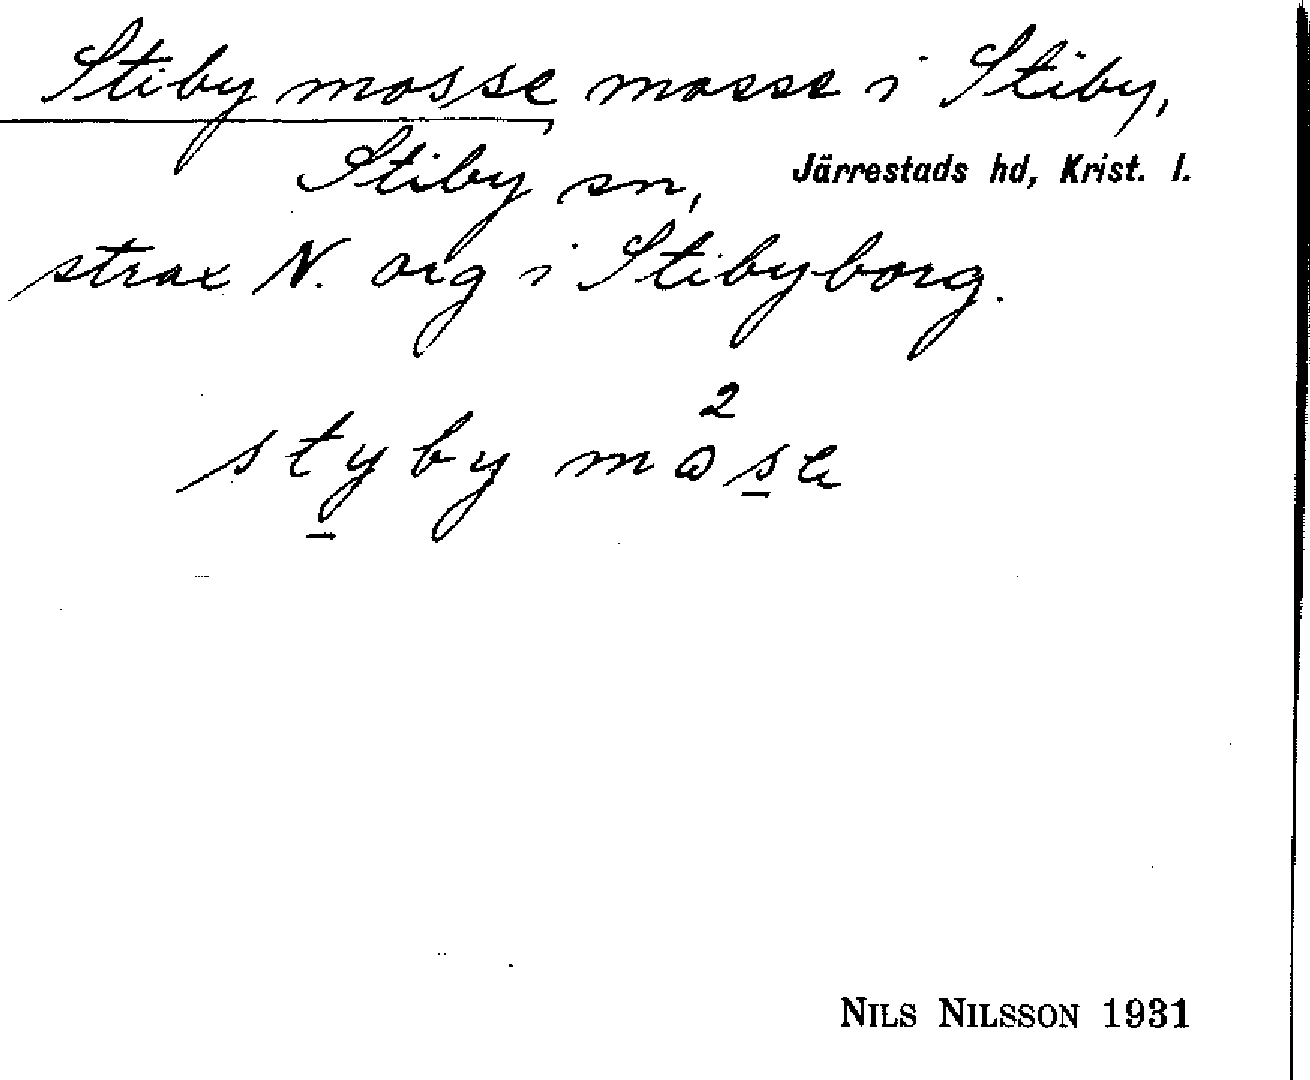 Stiby mosse, mosse i Stiby,
Stiby sn, Järrestads hd, Krist. l.
strax N. org i Stibyborg.
2
styby måse
NILS NILSSON 1931